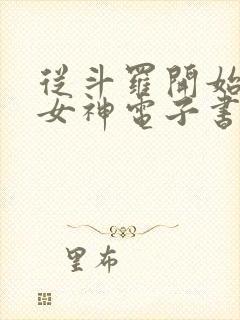 從斗羅開始
女神電子書
里布